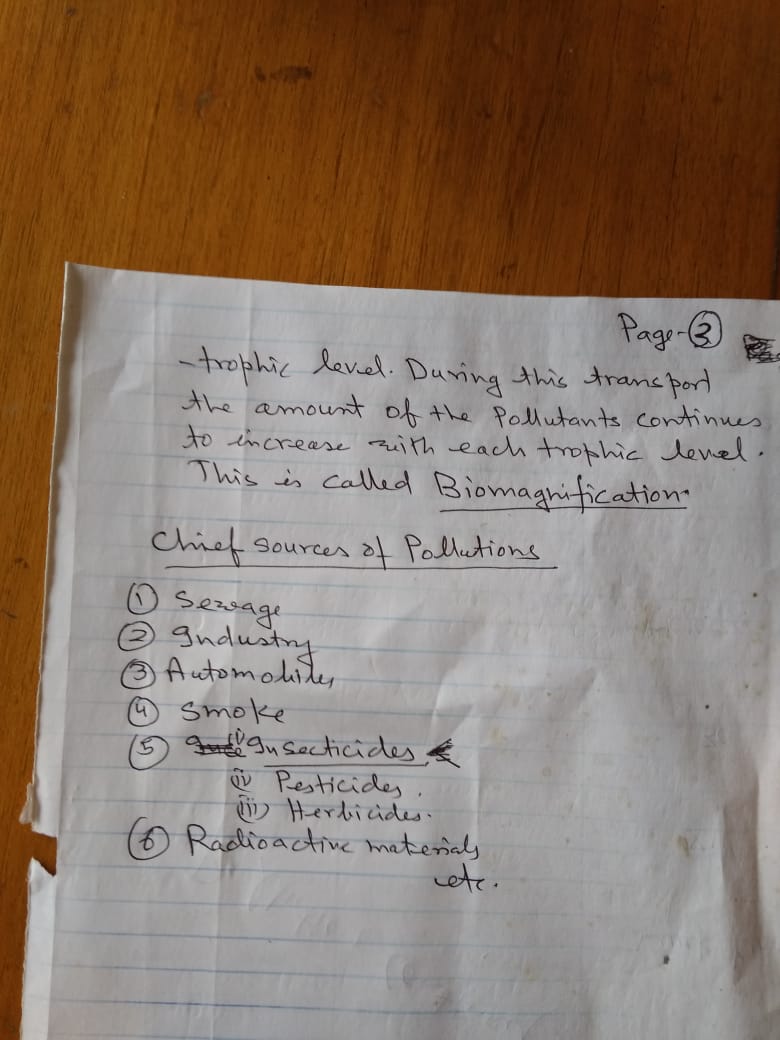 Page-③
-trophic level. During this transport
the amount of the Pollutants continues
to increase with each trophic level.
This is called Biomagnification.
Chief sources of Pollutions
① Sewage
② Industry
③ Automobiles
④ Smoke
⑤ (i) Insecticides
(ii) Pesticides.
(iii) Herbicides.
⑥ Radioactive materials
etc.